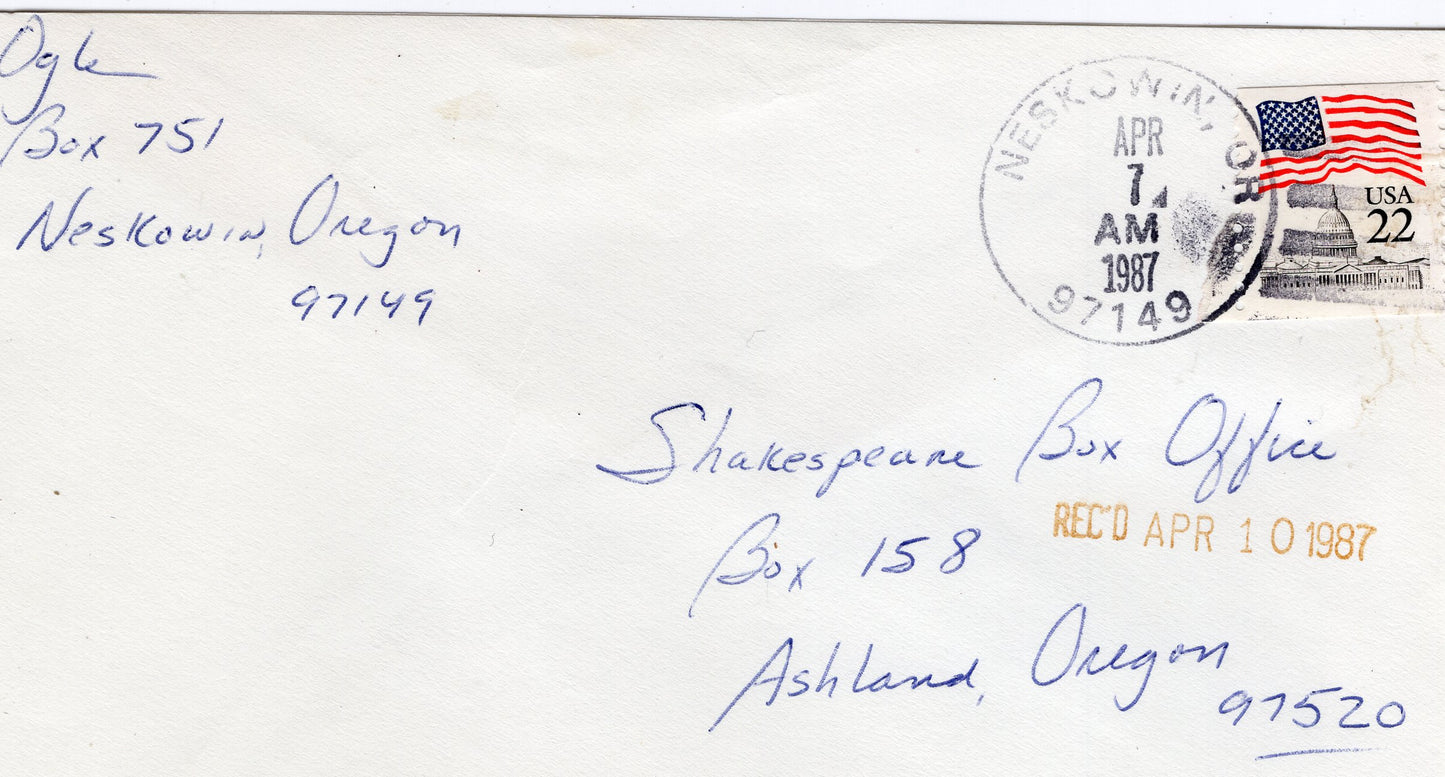 Ogle
Box 751
Neskowin, Oregon
97149
NESKOWIN, OR
APR
7
AM
1987
97149
USA
22
Shakespeare Box Office
REC'D APR 10 1987
Box 158
Ashland, Oregon
97520